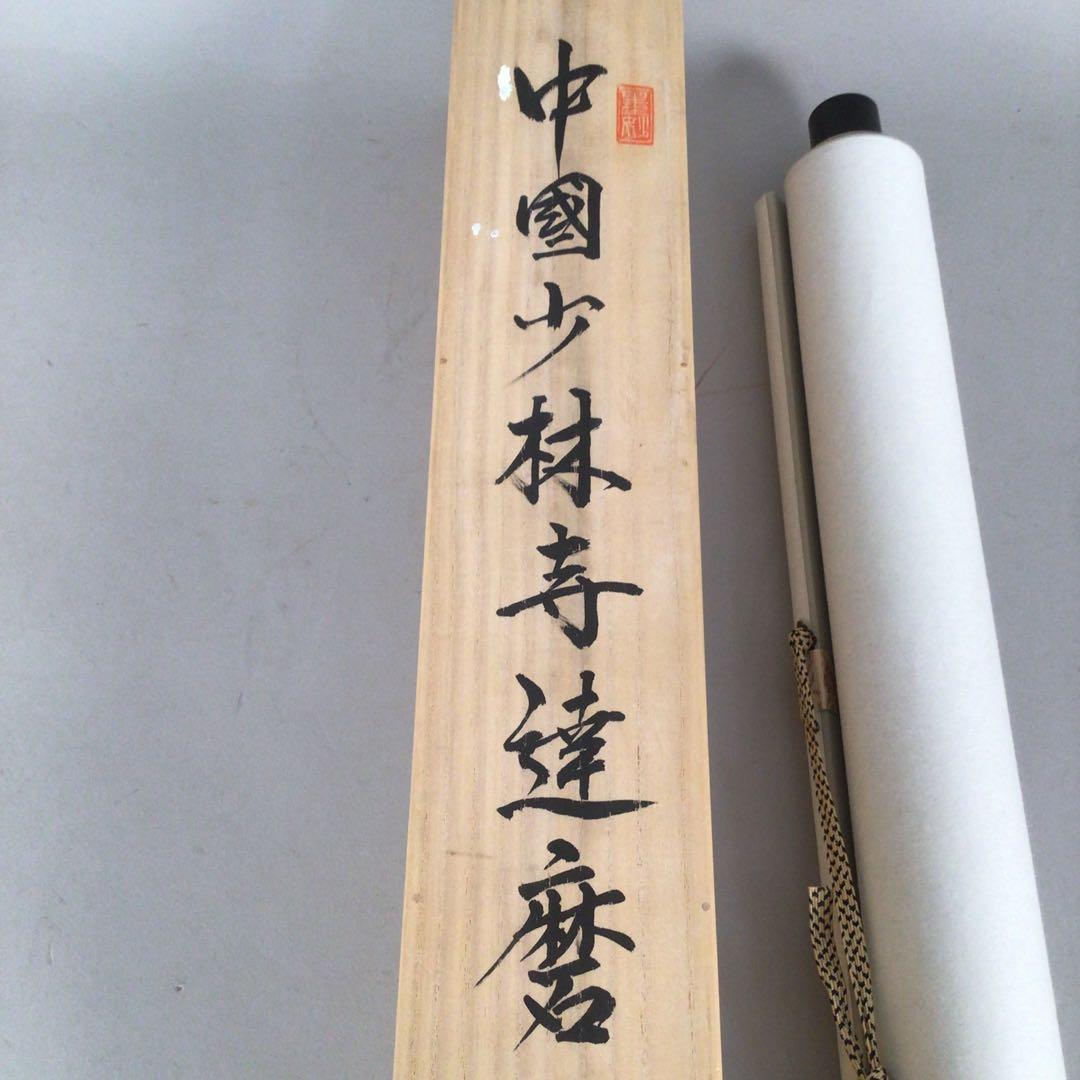 中國少林寺達磨